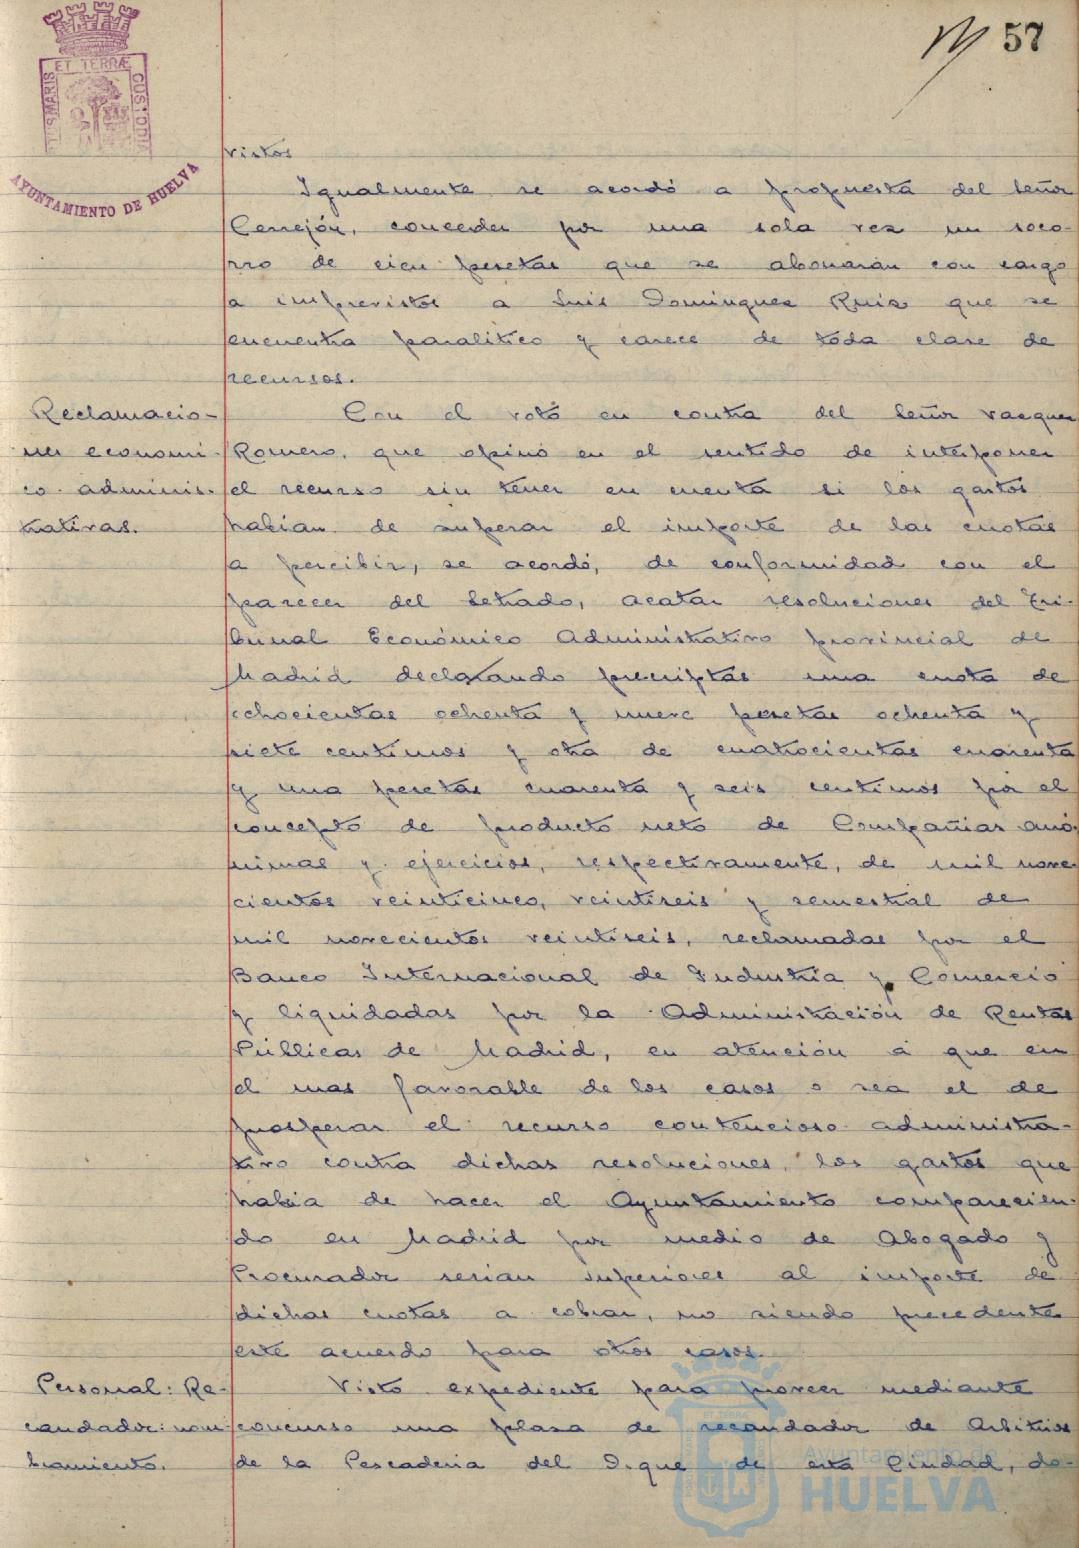 57
ET TERRÆ
CUSTODIA
AYUNTAMIENTO DE HUELVA
vistos
Igualmente se acordó a propuesta del Señor
Cerrejón, conceder por una sola vez un soco-
rro de cien pesetas que se abonarán con cargo
a imprevistos a Luis Dominguez Ruiz que se
encuentra paralítico y carece de toda clase de
recursos.
Reclamacio-
nes economi-
co-adminis-
trativas.
Con el voto en contra del Señor Vazquez
Romero, que opinó en el sentido de interponer
el recurso sin tener en cuenta si los gastos
habian de superar el importe de las cuotas
a percibir, se acordó, de conformidad con el
parecer del Letrado, acatar resoluciones del Tri-
bunal Económico Administrativo provincial de
Madrid declarando prescriptas una cuota de
ochocientas ochenta y nueve pesetas ochenta y
siete centimos y otra de cuatrocientas cuarenta
y una pesetas cuarenta y seis centimos por el
concepto de producto neto de Compañias anó-
nimas y ejercicios, respectivamente, de mil nove-
cientos veinticinco, veintiseis y semestral de
mil novecientos veintiseis, reclamadas por el
Banco Internacional de Industria y Comercio
y liquidadas por la Administración de Rentas
Públicas de Madrid, en atención a que en
el mas favorable de los casos o sea el de
prosperar el recurso contencioso administra-
tivo contra dichas resoluciones, los gastos que
habia de hacer el Ayuntamiento comparecien-
do en Madrid por medio de Abogado y
Procurador serian superiores al importe de
dichas cuotas a cobrar, no siendo precedente
este acuerdo para otros casos.
Personal: Re-
caudador: nom-
bramiento.
Visto expediente para proveer mediante
concurso una plaza de recaudador de Arbitrios
de la Pescaderia del Dique de esta Ciudad, de-
Ayuntamiento de
HUELVA